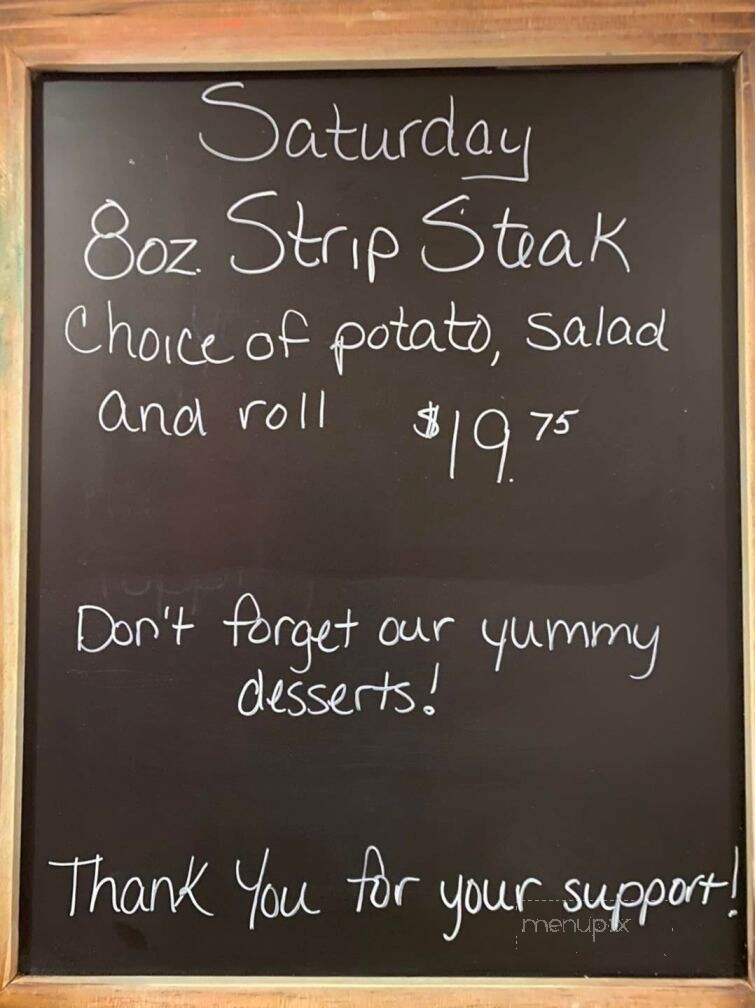 Saturday
8oz. Strip Steak
Choice of potato, salad
and roll $19.75
Don't forget our yummy
desserts!
Thank You for your support!
menupix